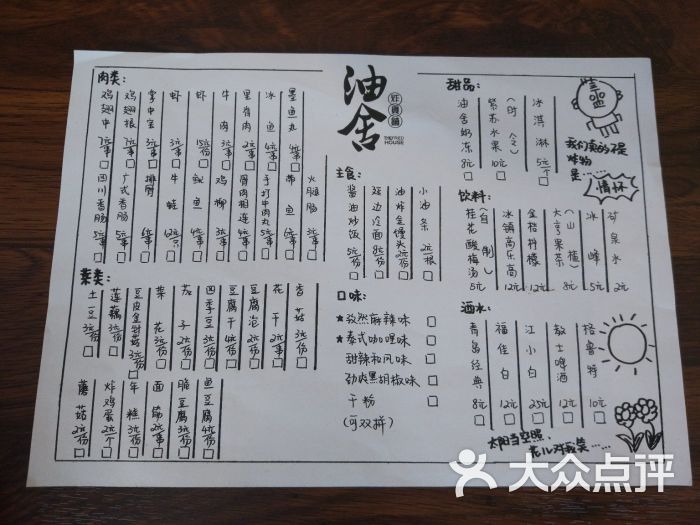 肉类:
鸡翅中 7元/串
鸡翅根 7元/串
掌中宝 3元/串
虾 3元/串
虾 15元/份
牛肉 3元/串
里脊肉 2元/串
冰鱼 4元/串
墨鱼丸 4元/串
四川香肠 5元/串
广式香肠 5元/串
排骨 6元/串
牛蛙 12元/只
鱿鱼 4元/串
鸡柳 3元/串
骨肉相连 4元/串
手打牛肉丸 5元/串
带鱼 6元/串
火腿肠 3元/串
菜类:
土豆 3元/份
莲藕 3元/份
豆皮金针菇 3元/份
菜花 3元/份
茄子 2元/串
四季豆 3元/份
豆腐干 4元/份
豆腐泡 2元/份
花干 2元/串
香菇 3元/份
蘑菇 2元/份
炸鸡蛋 2元/个
年糕 3元/份
面筋 2元/串
脆豆腐 3元/份
鱼豆腐 4元/份
油舍
炸货铺
THE FRIED HOUSE
主食:
酱油炒饭 5元/份
延边冷面 8元/份
油炸金馒头 2元/份
小油条 2元/根
口味:
★孜然麻辣味
★泰式咖喱味
甜辣和风味
劲爽黑胡椒味
干粉
(可双拼)
甜品:
油舍奶冻 8元
紫苏水果(时令) 10元
冰淇淋 5元/个
我们卖的不是
炸物
是……
情怀
饮料:
桂花酸梅汤(自制) 5元
冰镇高乐高 12元
金桔柠檬 12元
大亨果茶(山楂) 8元
冰峰 5元
矿泉水 2元
酒水:
青岛经典 8元
福佳白 12元
江小白 25元
教士啤酒 12元
格鲁特 10元
太阳当空照,
花儿对我笑……
大众点评